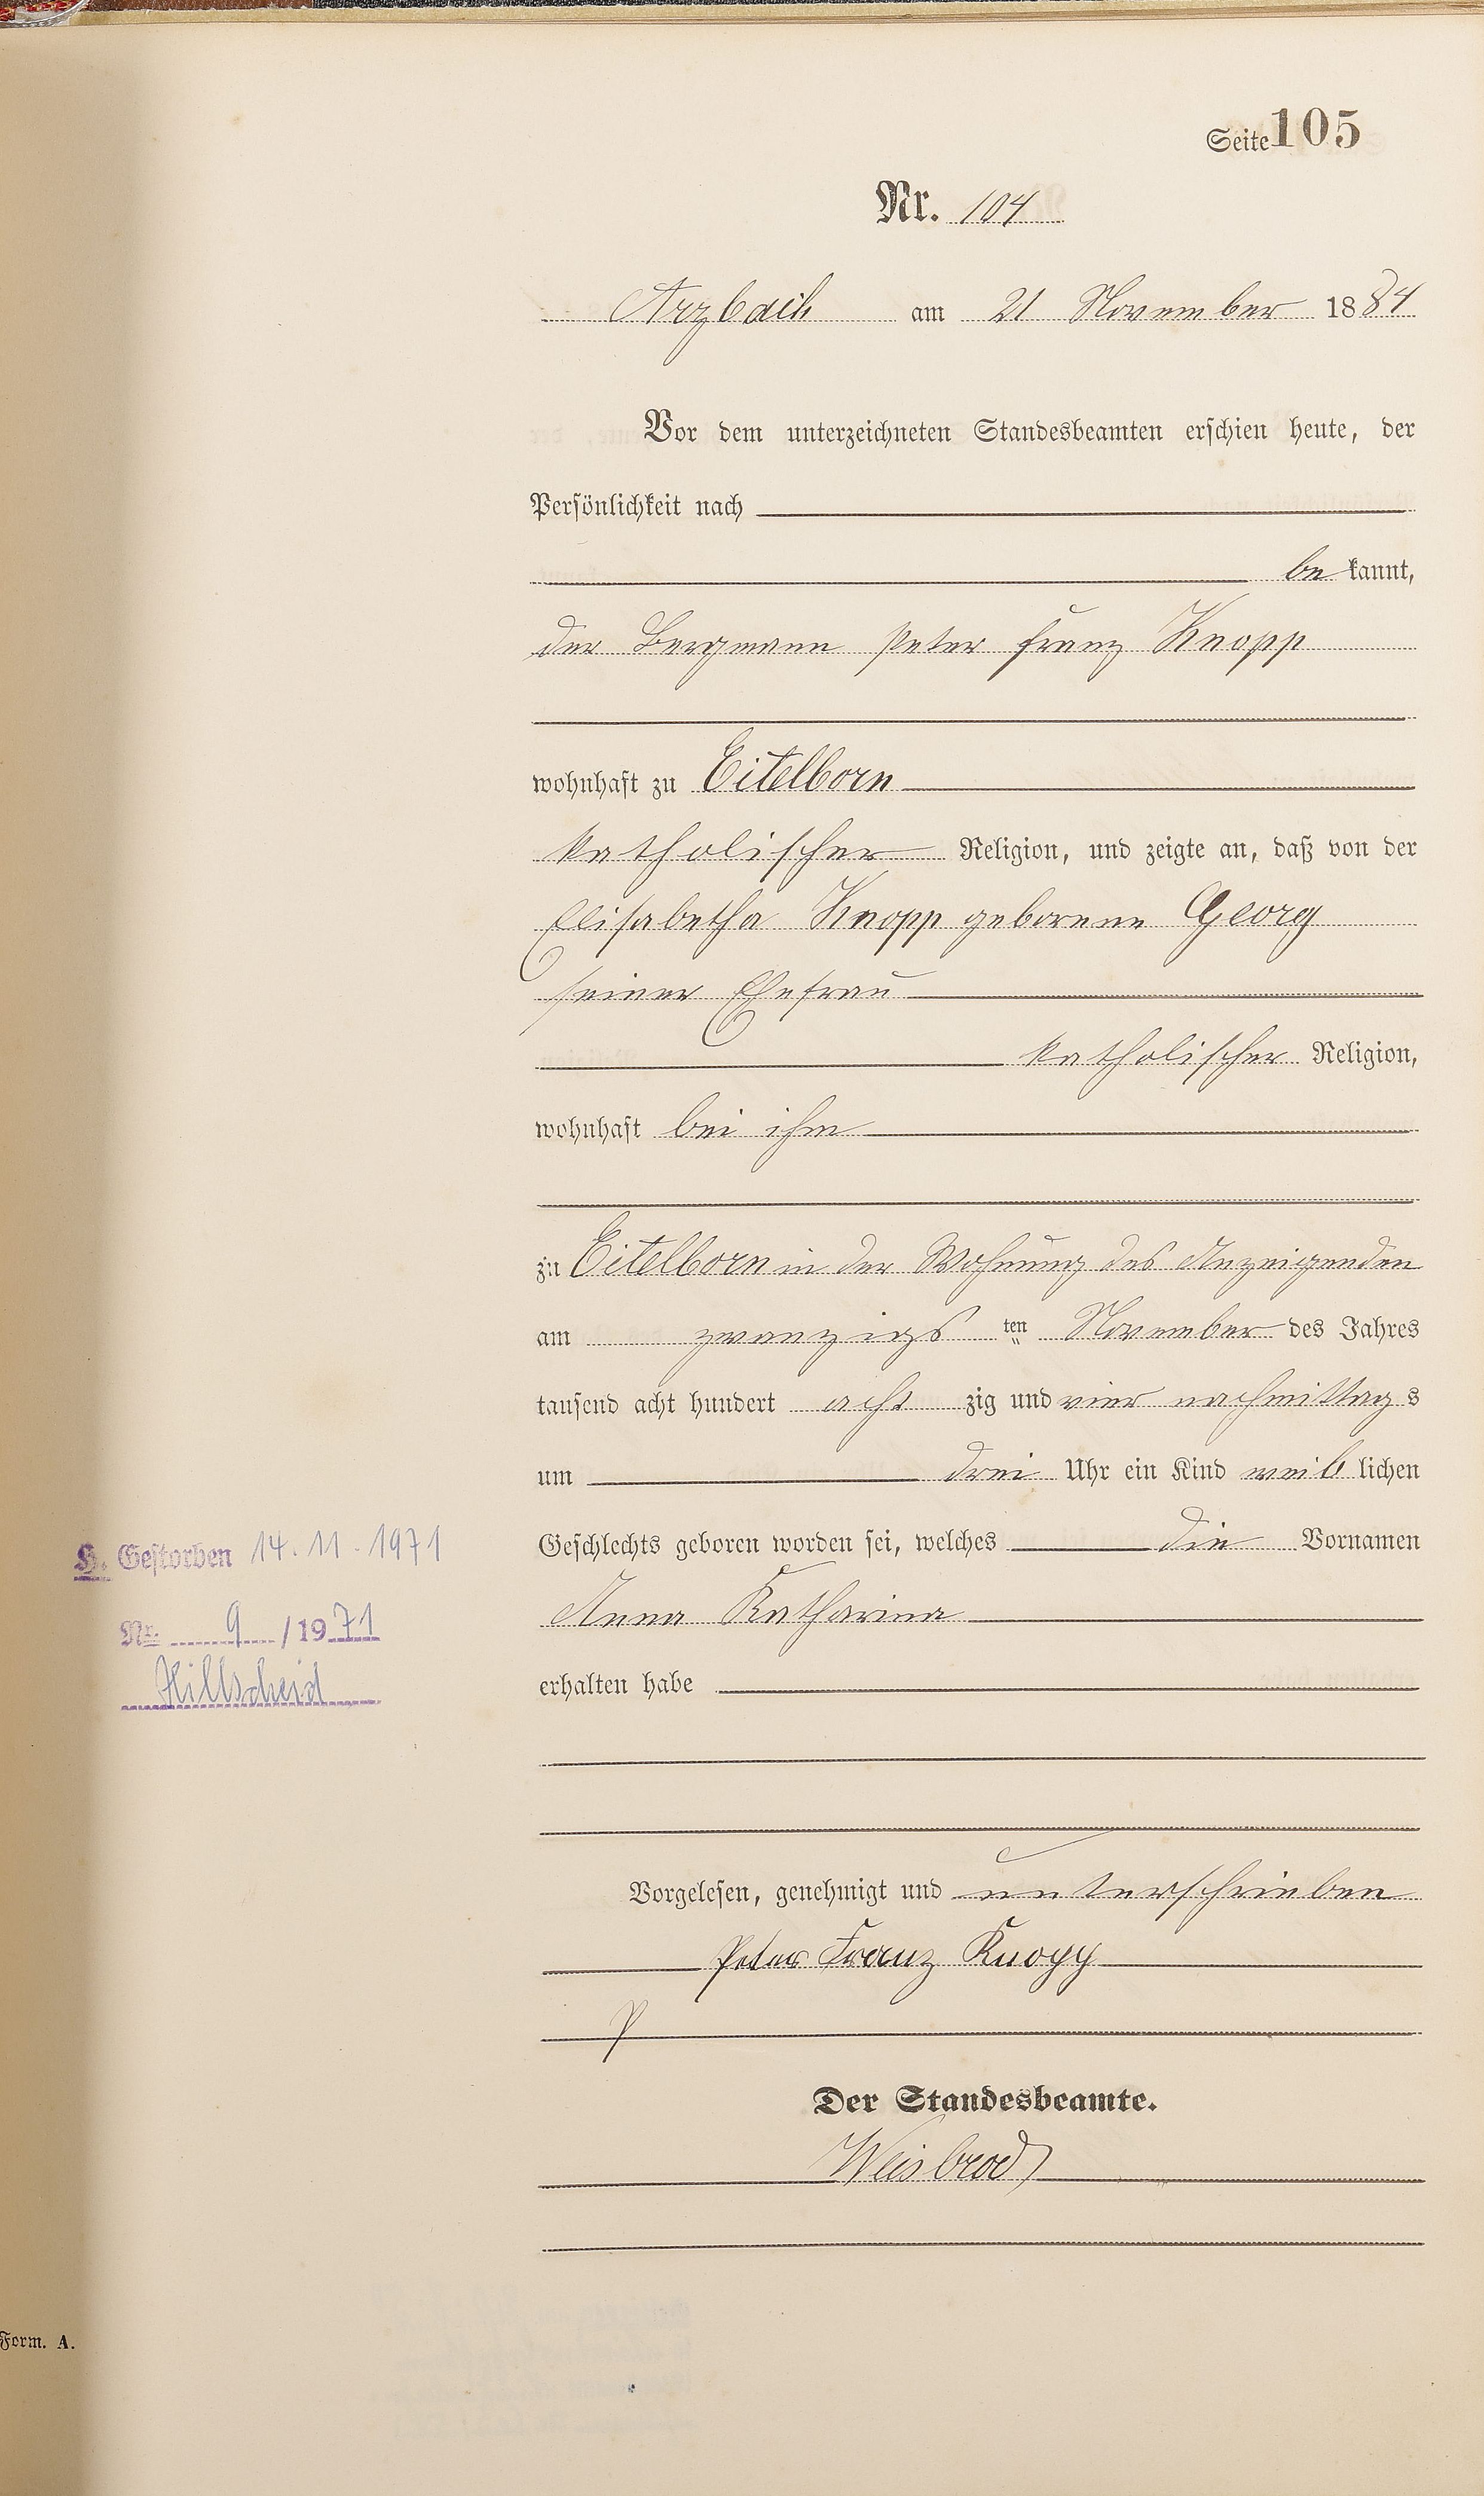 Seite 105
Nr. 104
Arzbach am 21 November 1884
Vor dem unterzeichneten Standesbeamten erschien heute, der
Persönlichkeit nach
be kannt,
der Bergmann Peter Franz Knopp
wohnhaft zu Eitelborn
katholischer Religion, und zeigte an, daß von der
Elisabetha Knopp geborene Georg
seiner Ehefrau
katholischer Religion,
wohnhaft bei ihm
zu Eitelborn in der Wohnung des Anzeigenden
am zwanzigs ten November des Jahres
tausend acht hundert acht zig und vier nachmittags
um drei Uhr ein Kind weib lichen
Geschlechts geboren worden sei, welches die Vornamen
Anna Katharina
erhalten habe
Vorgelesen, genehmigt und unterschrieben
Peter Franz Knopp
Der Standesbeamte.
Weisbrod
H. Gestorben 14.11.1971
Nr. 9 /1971
Hillscheid
Form. A.